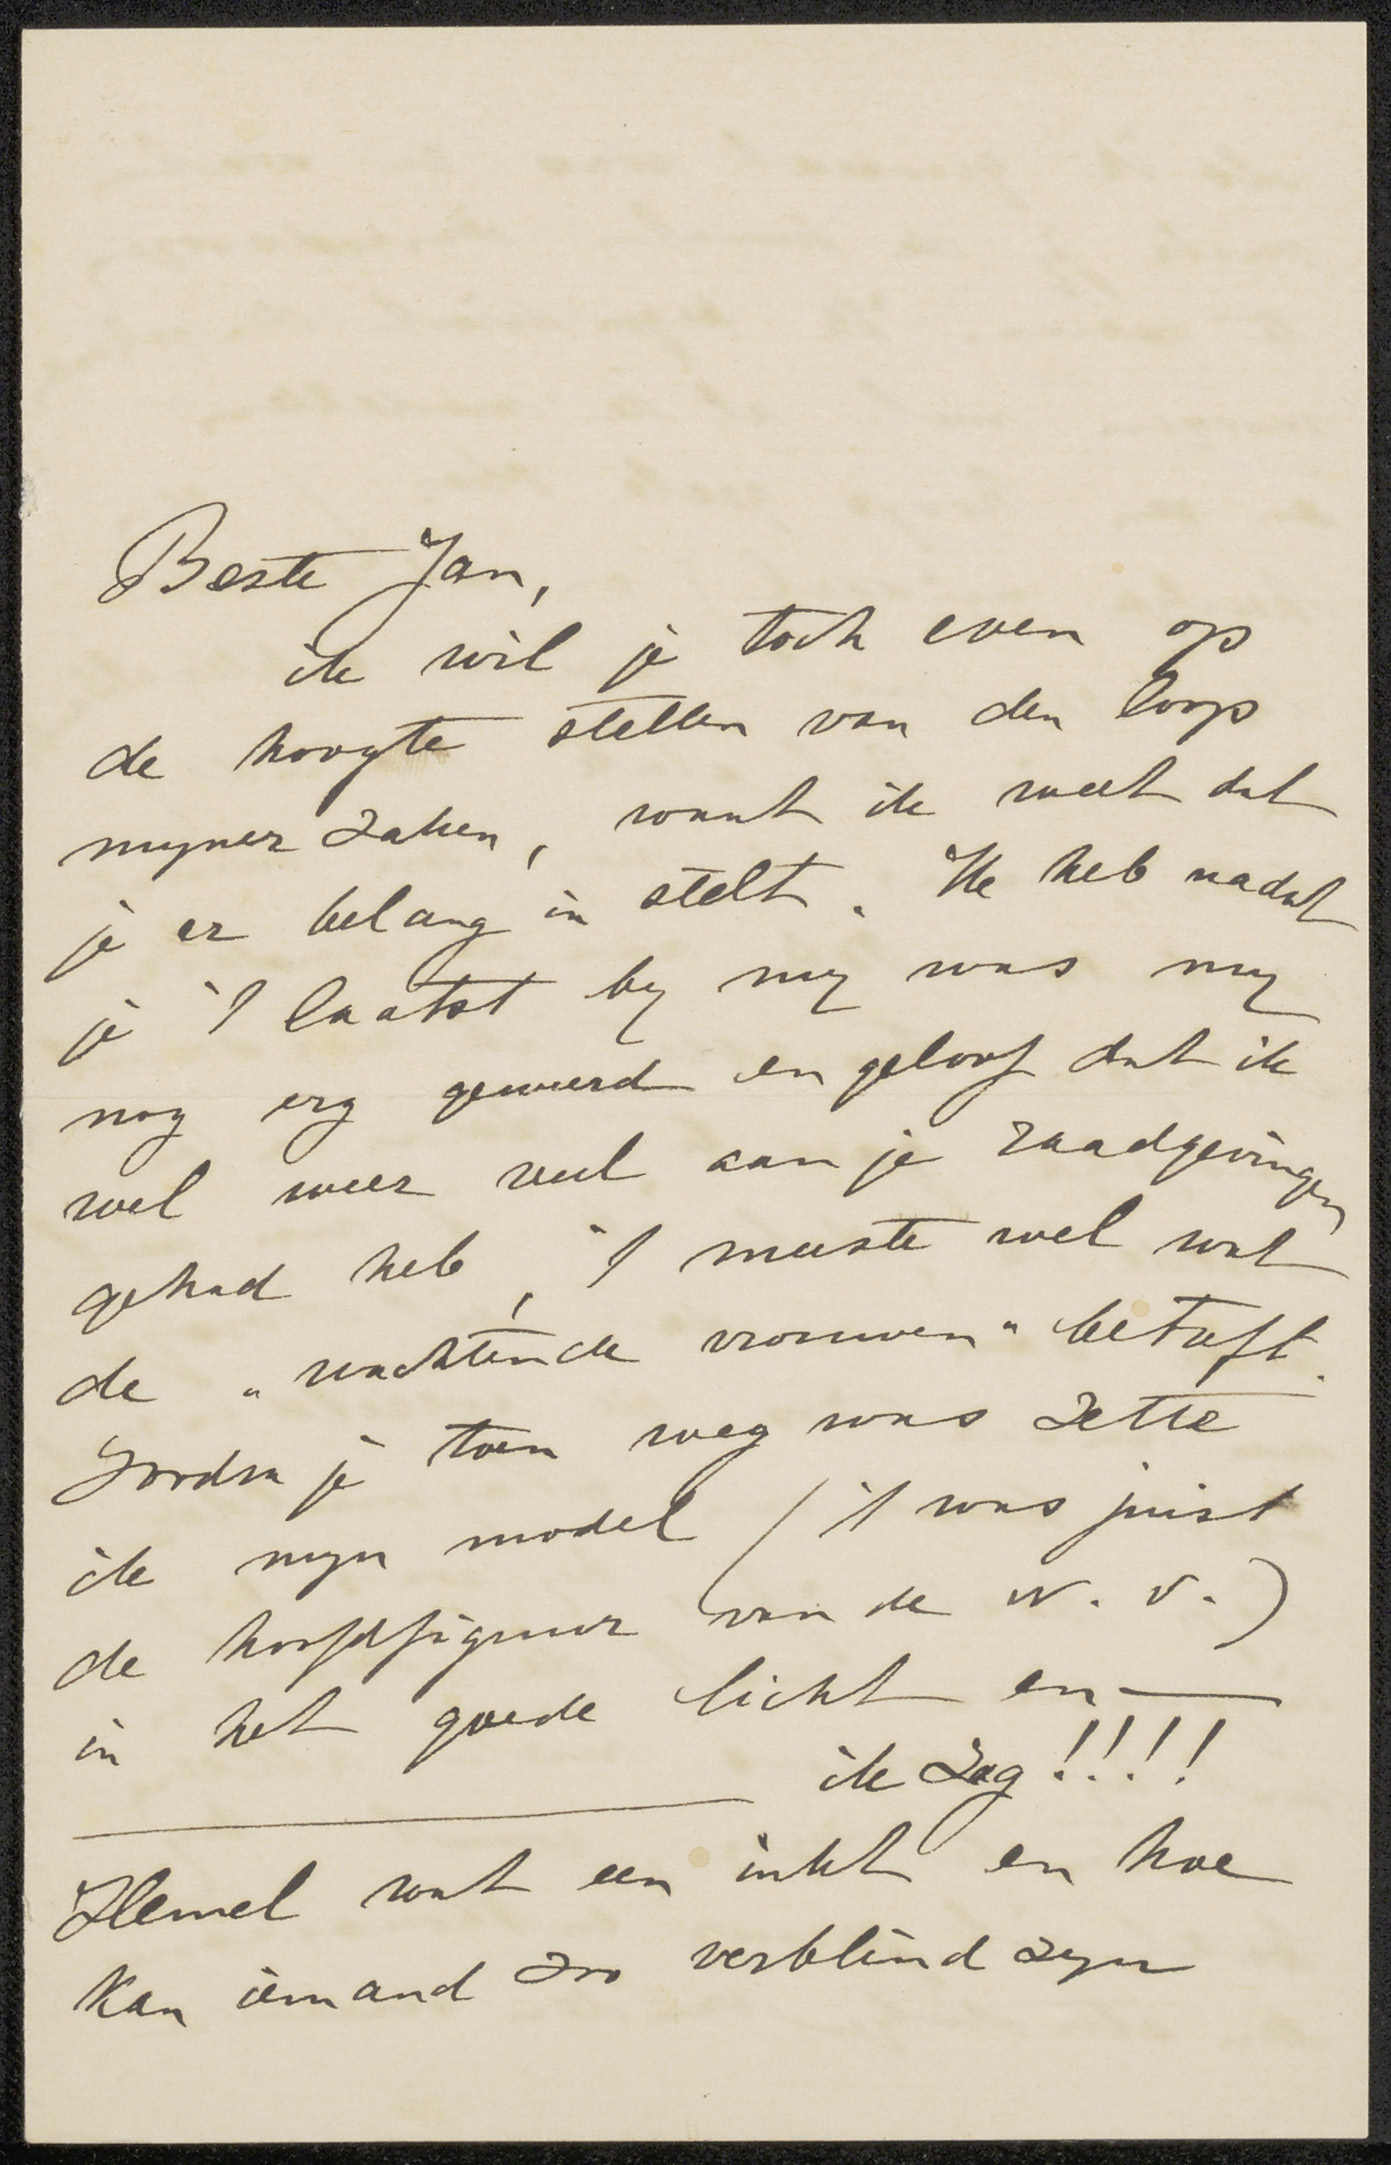 Beste Jan,
ik wil je toch even op
de hoogte stellen van den loop
mijner zaken, want ik weet dat
je er belang in stelt. Ik heb nadat
je 't laatst bij mij was mij
nog erg geweerd en geloof dat ik
wel weer veel aan je raadgevingen
gehad heb, 't meeste wel wat
de "wachtende vrouwen" betreft.
Zoodra je toen weg was zette
ik mijn model (it was juist
de hoofdfiguur van de W. V.)
in het goede licht en —
ik zag!!!!
Hemel wat een inkt en hoe
kan iemand zoo verblind zijn